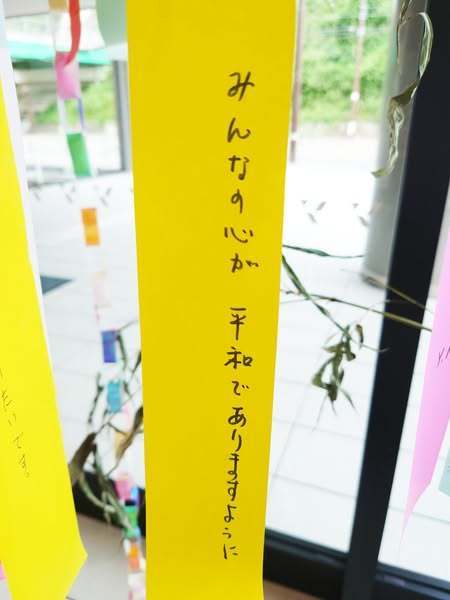 みんなの心が 平和でありますように
たいです。